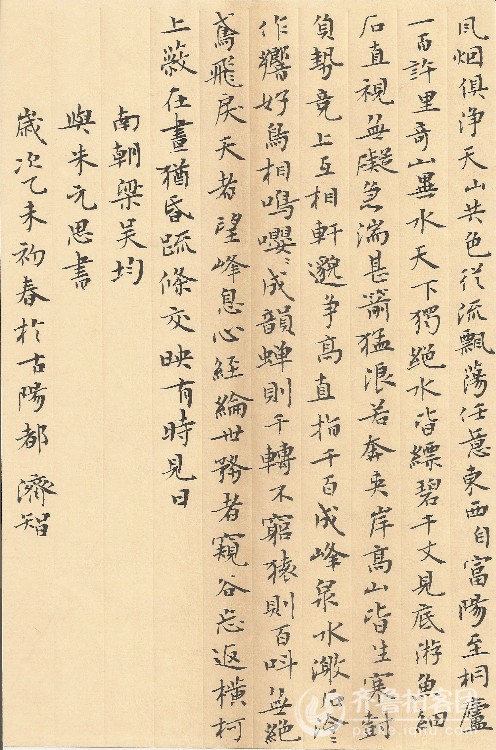 风烟俱净天山共色從流飄蕩任意東西自富陽至桐廬
一百許里奇山異水天下獨絶水皆縹碧千丈見底游魚細
石直視無礙急湍甚箭猛浪若奔夾岸高山皆生寒樹
負勢竞上互相軒邈争高直指千百成峰泉水激石泠〻
作響好鳥相鳴嚶〻成韻蟬則千轉不窮猿則百叫無絶
鳶飛戾天者望峰息心經綸世務者窺谷忘返橫柯
上蔽在晝猶昏疏條交映有時見日
南朝梁吴均
與朱元思書
歲次乙未初春於古陽都 濟智
齐鲁拍客团
paike.iqilu.com